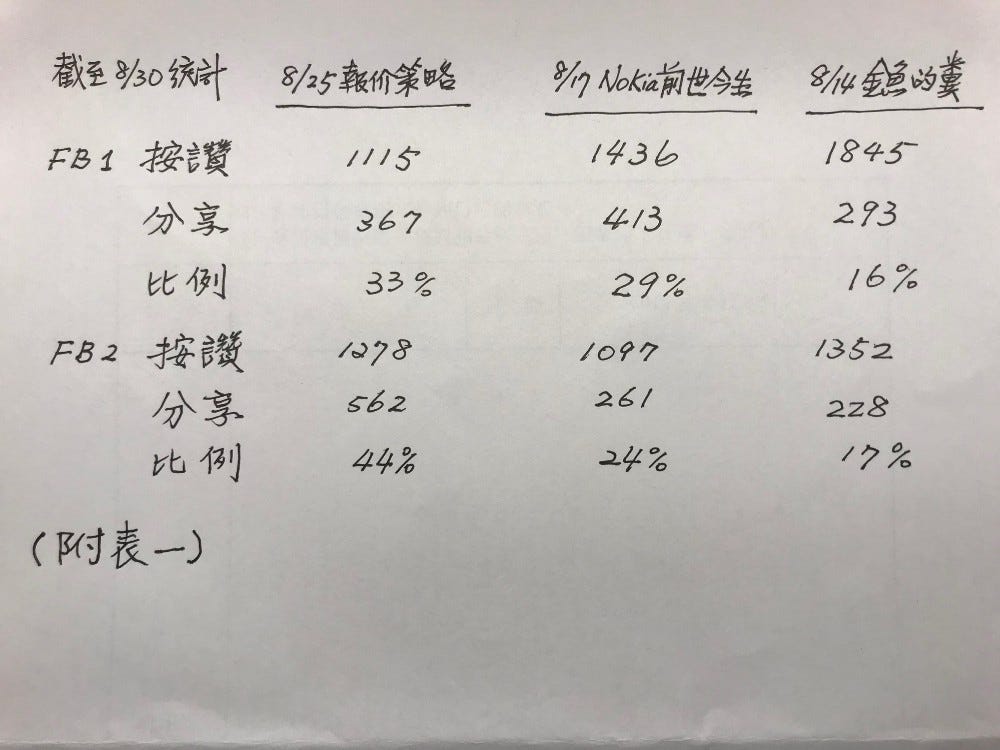 截至8/30統計 8/25報价策略 8/17 Nokia前世今生 8/14金魚的糞
FB1 按讚 1115 1436 1845
分享 367 413 293
比例 33% 29% 16%
FB2 按讚 1278 1097 1352
分享 562 261 228
比例 44% 24% 17%
(附表一)